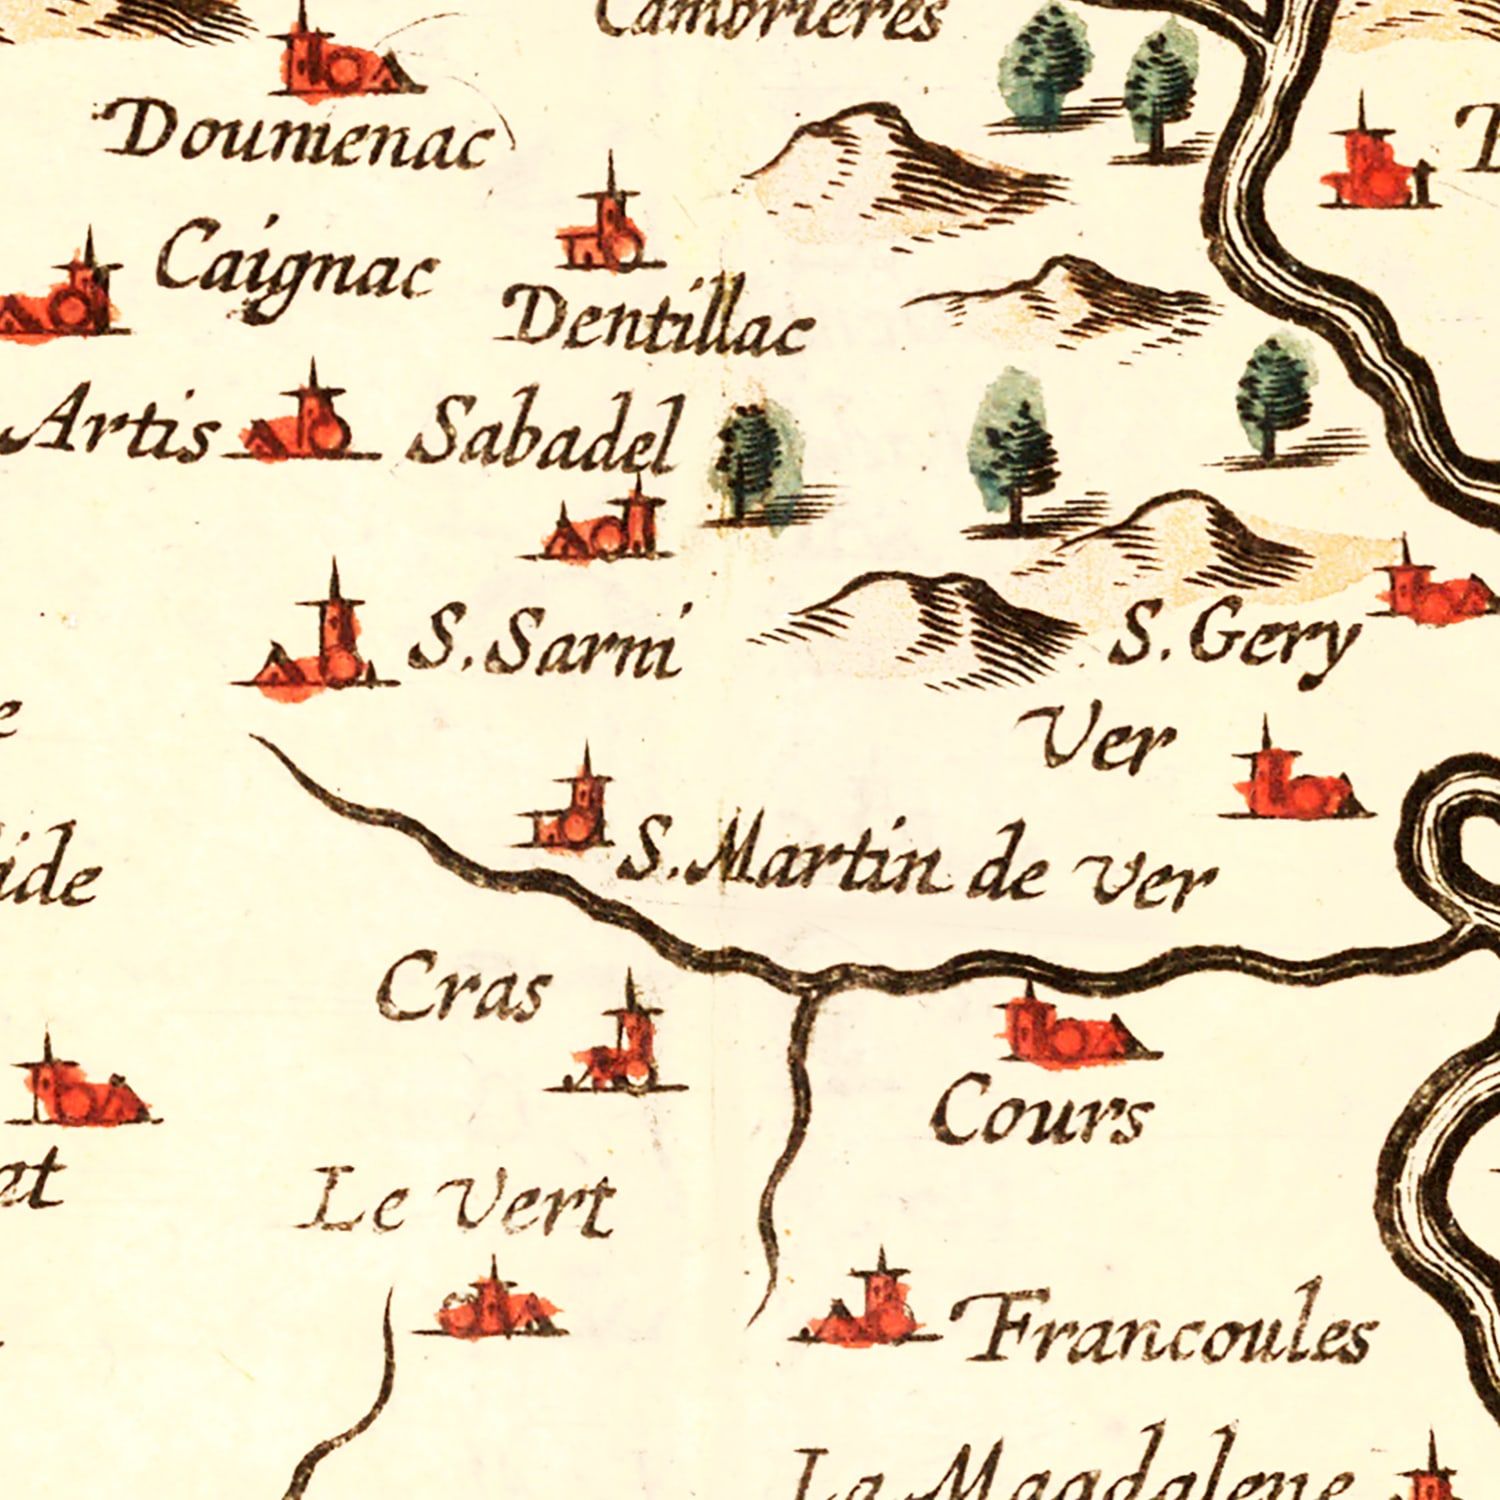 Cambrieres
Doumenac
Caignac
Dentillac
Artis
Sabadel
S. Sarni
S. Gery
Ver
S. Martin de Ver
Cras
Cours
Le Vert
Francoules
La Magdalene